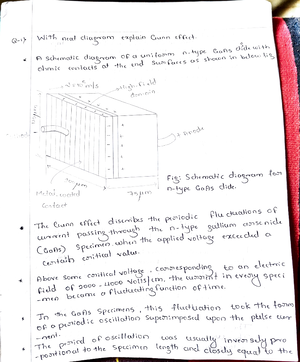 Q-1) With neat diagram explain Gunn effect.
A schematic diagram of a uniform n-type GaAs diode with
ohmic contacts at the end surfaces as shown in below fig
High-field
domain
Anode
Metal-coated
contact
Fig: Schematic diagram for
n-type GaAs diode.
The Gunn effect describes the periodic fluctuations of
current passing through the n-type gallium arsenide
(GaAs) specimen when the applied voltage exceeded a
certain critical value.
Above some critical voltage - corresponding to an electric
field of 2000-4000 volts/cm, the current in every speci
-men became a fluctuating function of time.
In the GaAs specimens, this fluctuation took the form
of a periodic oscillation superimposed upon the pulse curr
-ent.
The period of oscillation was usually inversely pro
-portional to the specimen length and closely equal to the